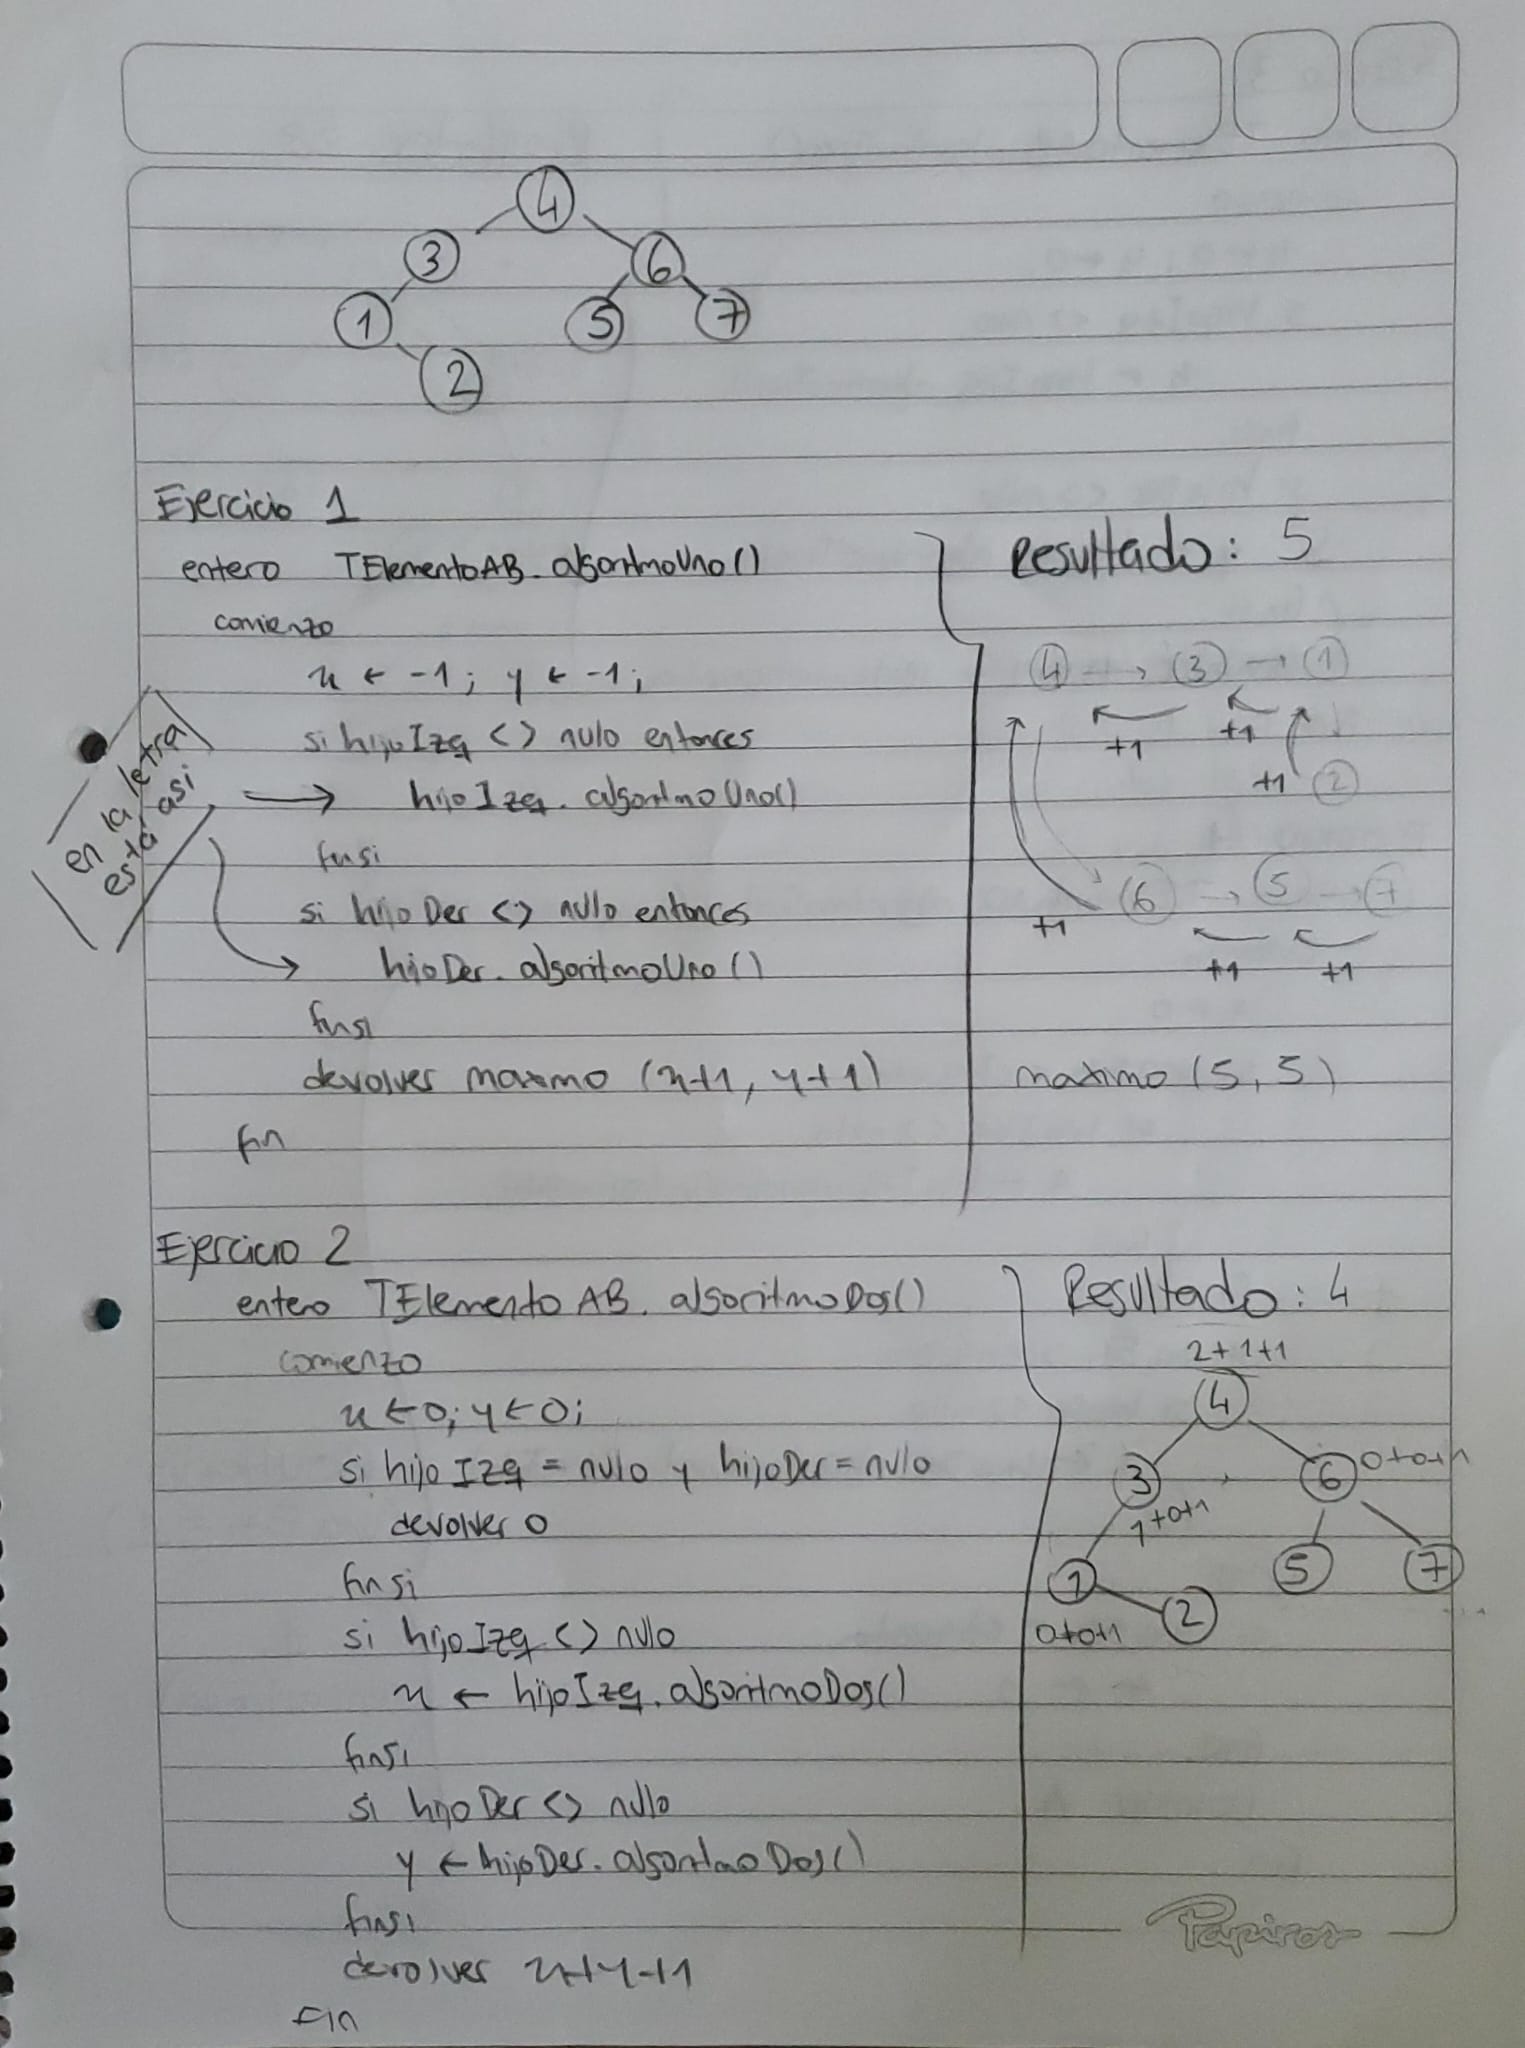 4
3 6
1 5 7
2
Ejercicio 1
entero TElementoAB.algoritmoUno()
comienzo
x ← -1; y ← -1;
si hijoIzq <> nulo entonces
en la letra
está así
→ hijoIzq.algoritmoUno()
finsi
si hijoDer <> nulo entonces
hijoDer.algoritmoUno()
finsi
devolver maximo (x+1, y+1)
fin
Resultado: 5
4 → 3 → 1
+1 +1
+1 2
6 → 5 → 7
+1
+1 +1
maximo (5, 5)
Ejercicio 2
entero TElementoAB.algoritmoDos()
comienzo
x ← 0; y ← 0;
si hijoIzq = nulo y hijoDer = nulo
devolver 0
finsi
si hijoIzq <> nulo
x ← hijoIzq.algoritmoDos()
finsi
si hijoDer <> nulo
y ← hijoDer.algoritmoDos()
finsi
devolver x+y+1
Fin
Resultado: 4
2+1+1
4
3 6 0+0+1
1+0+1
1 5 7
0+0+1 2
Papiros